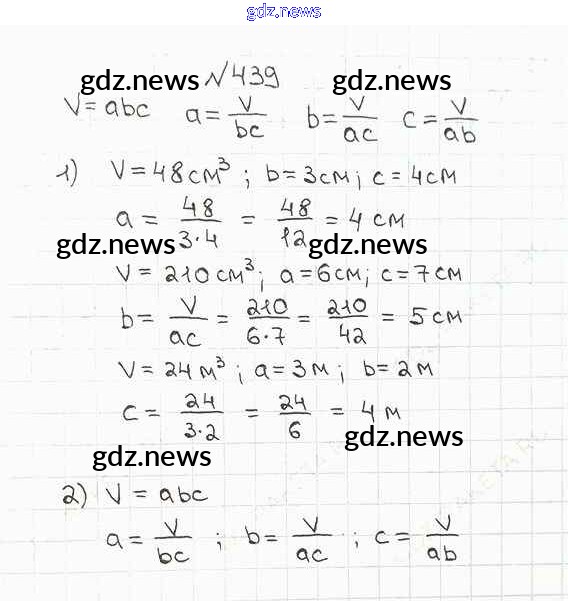 gdz.news
№439
gdz.news gdz.news
V=abc a=V/bc b=V/ac c=V/ab
1) V=48см³; b=3см; c=4см
a = 48/3·4 = 48/12 = 4 см
gdz.news gdz.news
V= 210см³; a=6см; c=7см
b= V/ac = 210/6·7 = 210/42 = 5см
V= 24м³; a=3м; b=2м
c= 24/3·2 = 24/6 = 4м
gdz.news
gdz.news
2) V = abc
a= V/bc ; b= V/ac ; c= V/ab